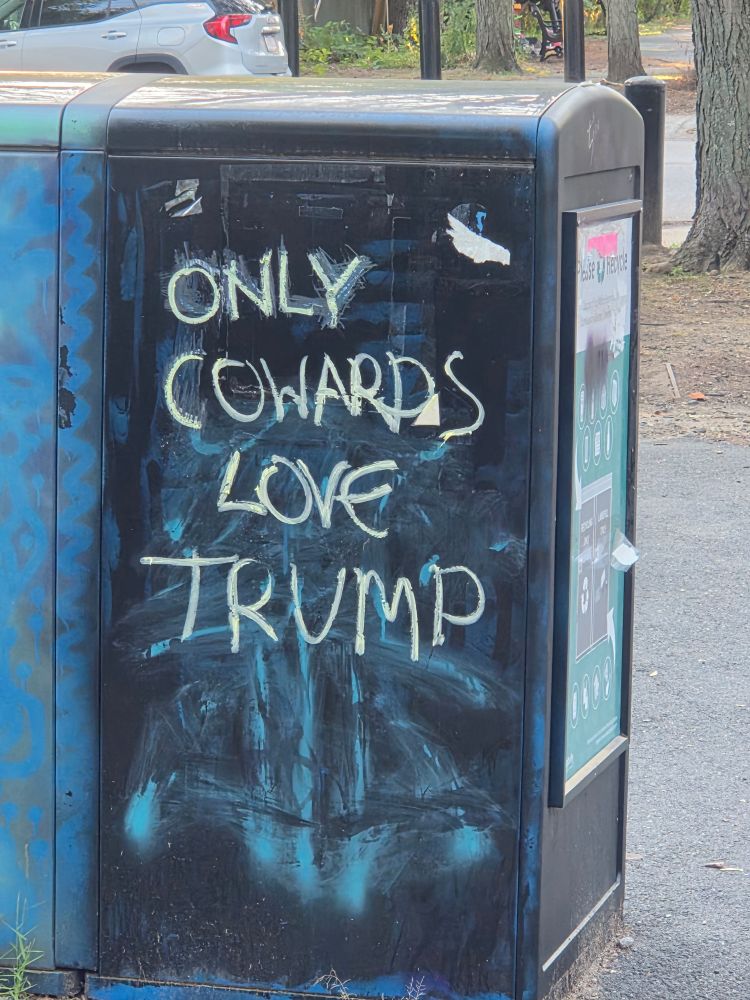 ONLY
COWARDS
LOVE
TRUMP
Please Recycle